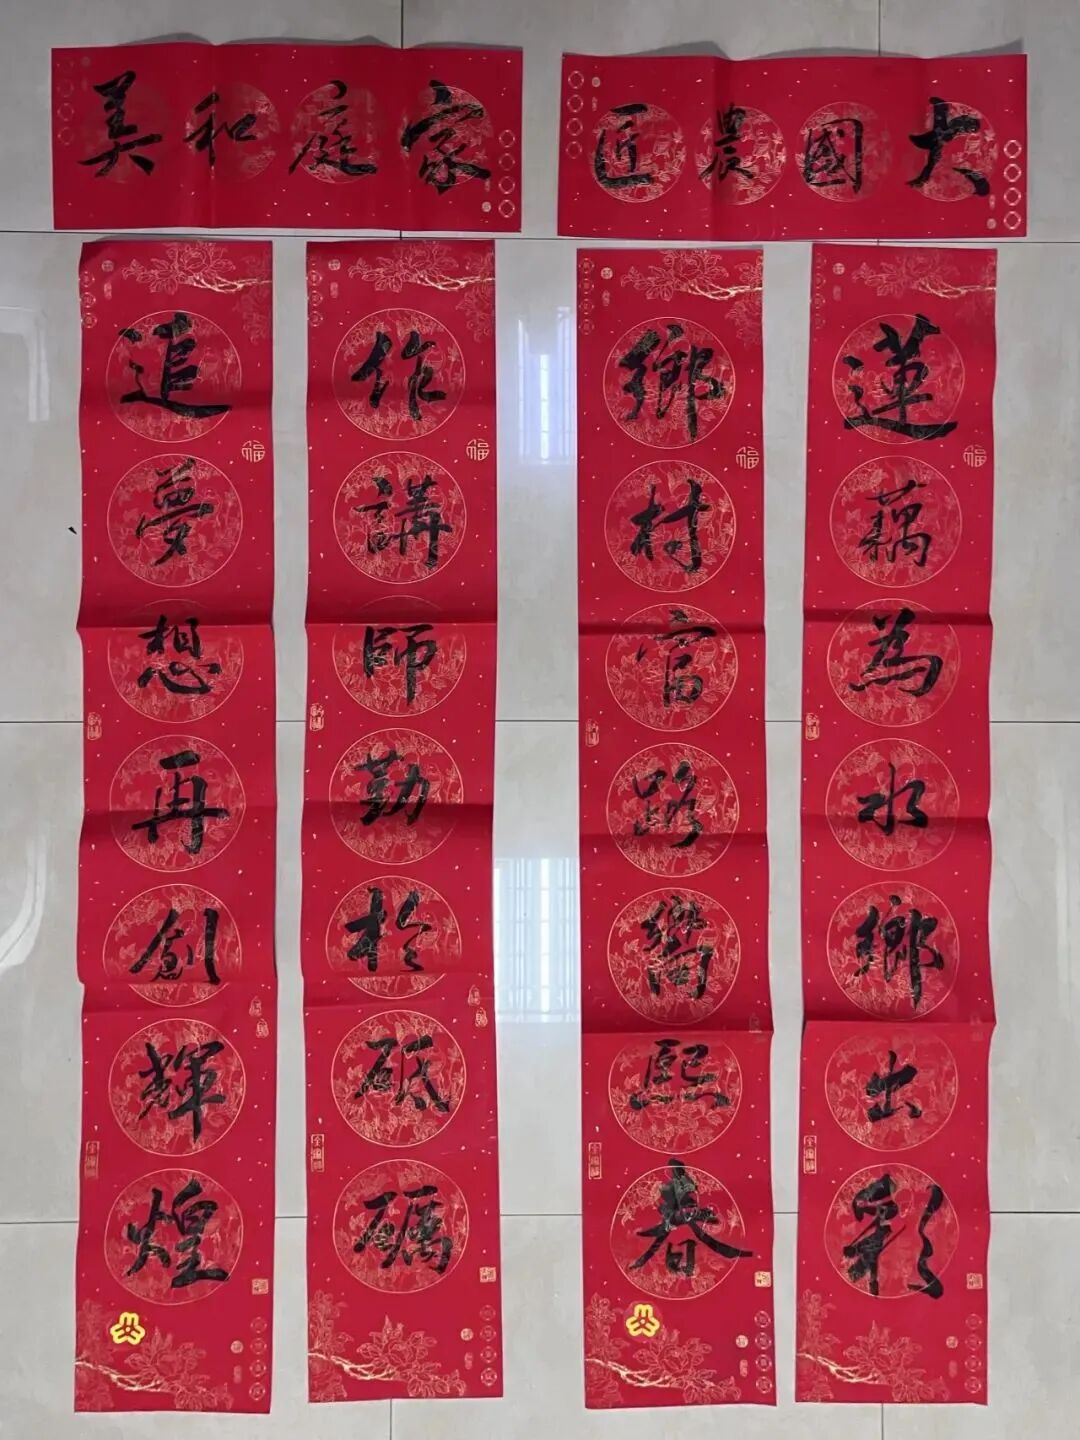 大國農匠
蓮藕為水鄉出彩
鄉村富路嚮熙春
家庭和美
作講師勤於砥礪
追夢想再創輝煌
福
福
福
福